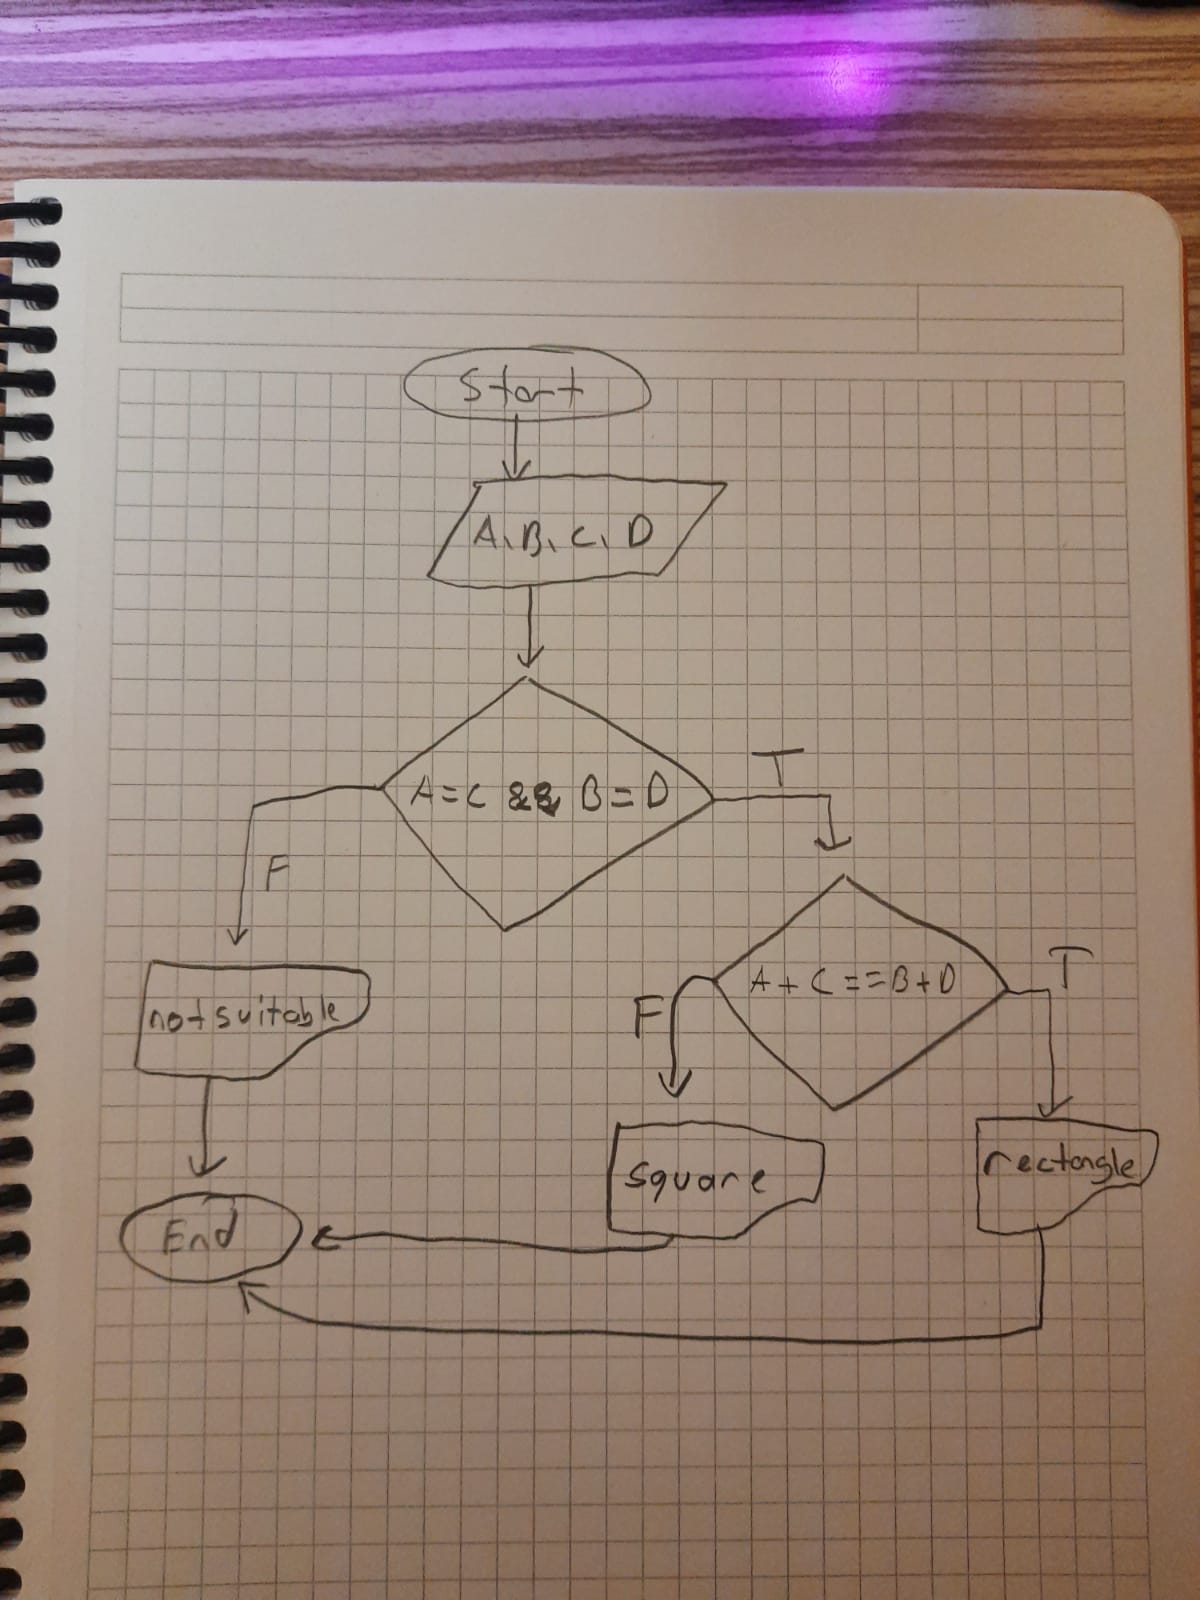 Start
A, B, C, D
A=C && B=D
T
F
A+C==B+D
T
F
not suitable
square
rectangle
End